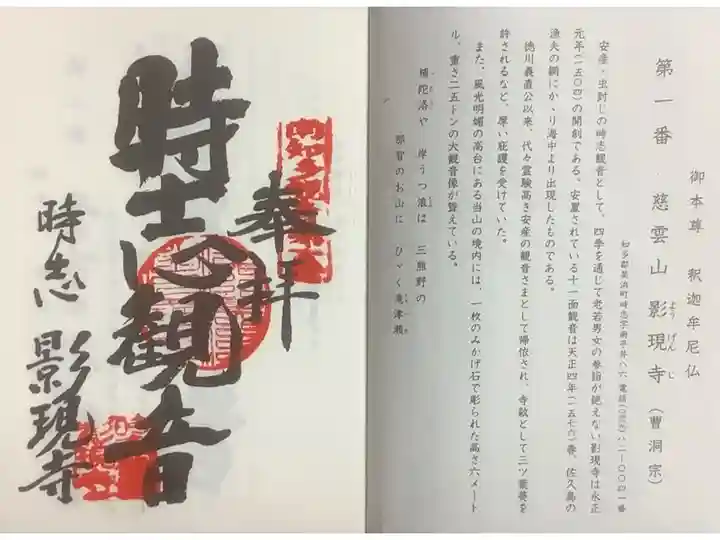 御本尊 釈迦牟尼仏
第一番 慈雲山 影現寺(曹洞宗)
ようげんじ
安産・虫封じの時志観音として、四季を通じて老若男女の参詣が絶えない影現寺は永正
元年(一五〇四)の開創である。安置されている十一面観音は天正四年(一五七六)春、佐久島の
漁夫の網にかゝり海中より出現したものである。
徳川義直公以来、代々霊験高き安産の観音さまとして帰依され、寺紋として三ツ葉葵を
許されるなど、厚い庇護を受けていた。
また、風光明媚の高台にある当山の境内には、一枚のみかげ石で彫られた高さ六メート
ル、重さ二五トンの大観音像が聳えている。
補陀洛や 岸うつ浪は 三熊野の
那智のお山に ひゞく滝津瀬
奉拝
時志観音
時志 影現寺